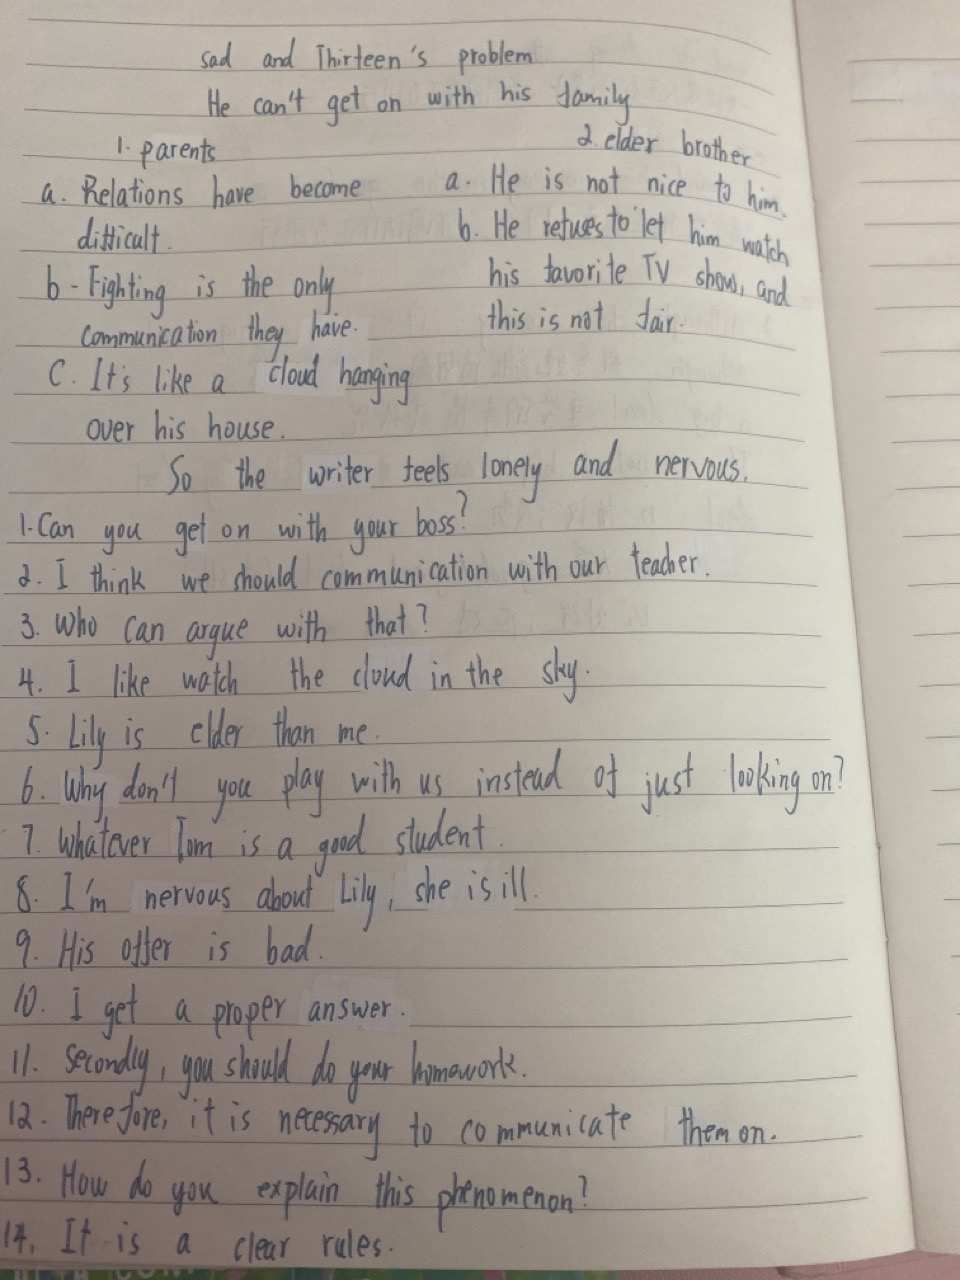 sad and Thirteen's problem
He can't get on with his family
1. parents
2. elder brother
a. Relations have become
difficult.
b - Fighting is the only
communication they have.
C. It's like a cloud hanging
over his house.
a. He is not nice to him.
b. He refuses to let him watch
his favorite TV show, and
this is not fair.
So the writer feels lonely and nervous.
1. Can you get on with your boss?
2. I think we should communication with our teacher.
3. Who can argue with that?
4. I like watch the cloud in the sky.
5. Lily is elder than me.
6. Why don't you play with us instead of just looking on?
7. Whatever Tom is a good student.
8. I'm nervous about Lily, she is ill.
9. His offer is bad.
10. I get a proper answer.
11. Secondly, you should do your homawork.
12. Therefore, it is necessary to communicate them on.
13. How do you explain this phenomenon?
14. It is a clear rules.